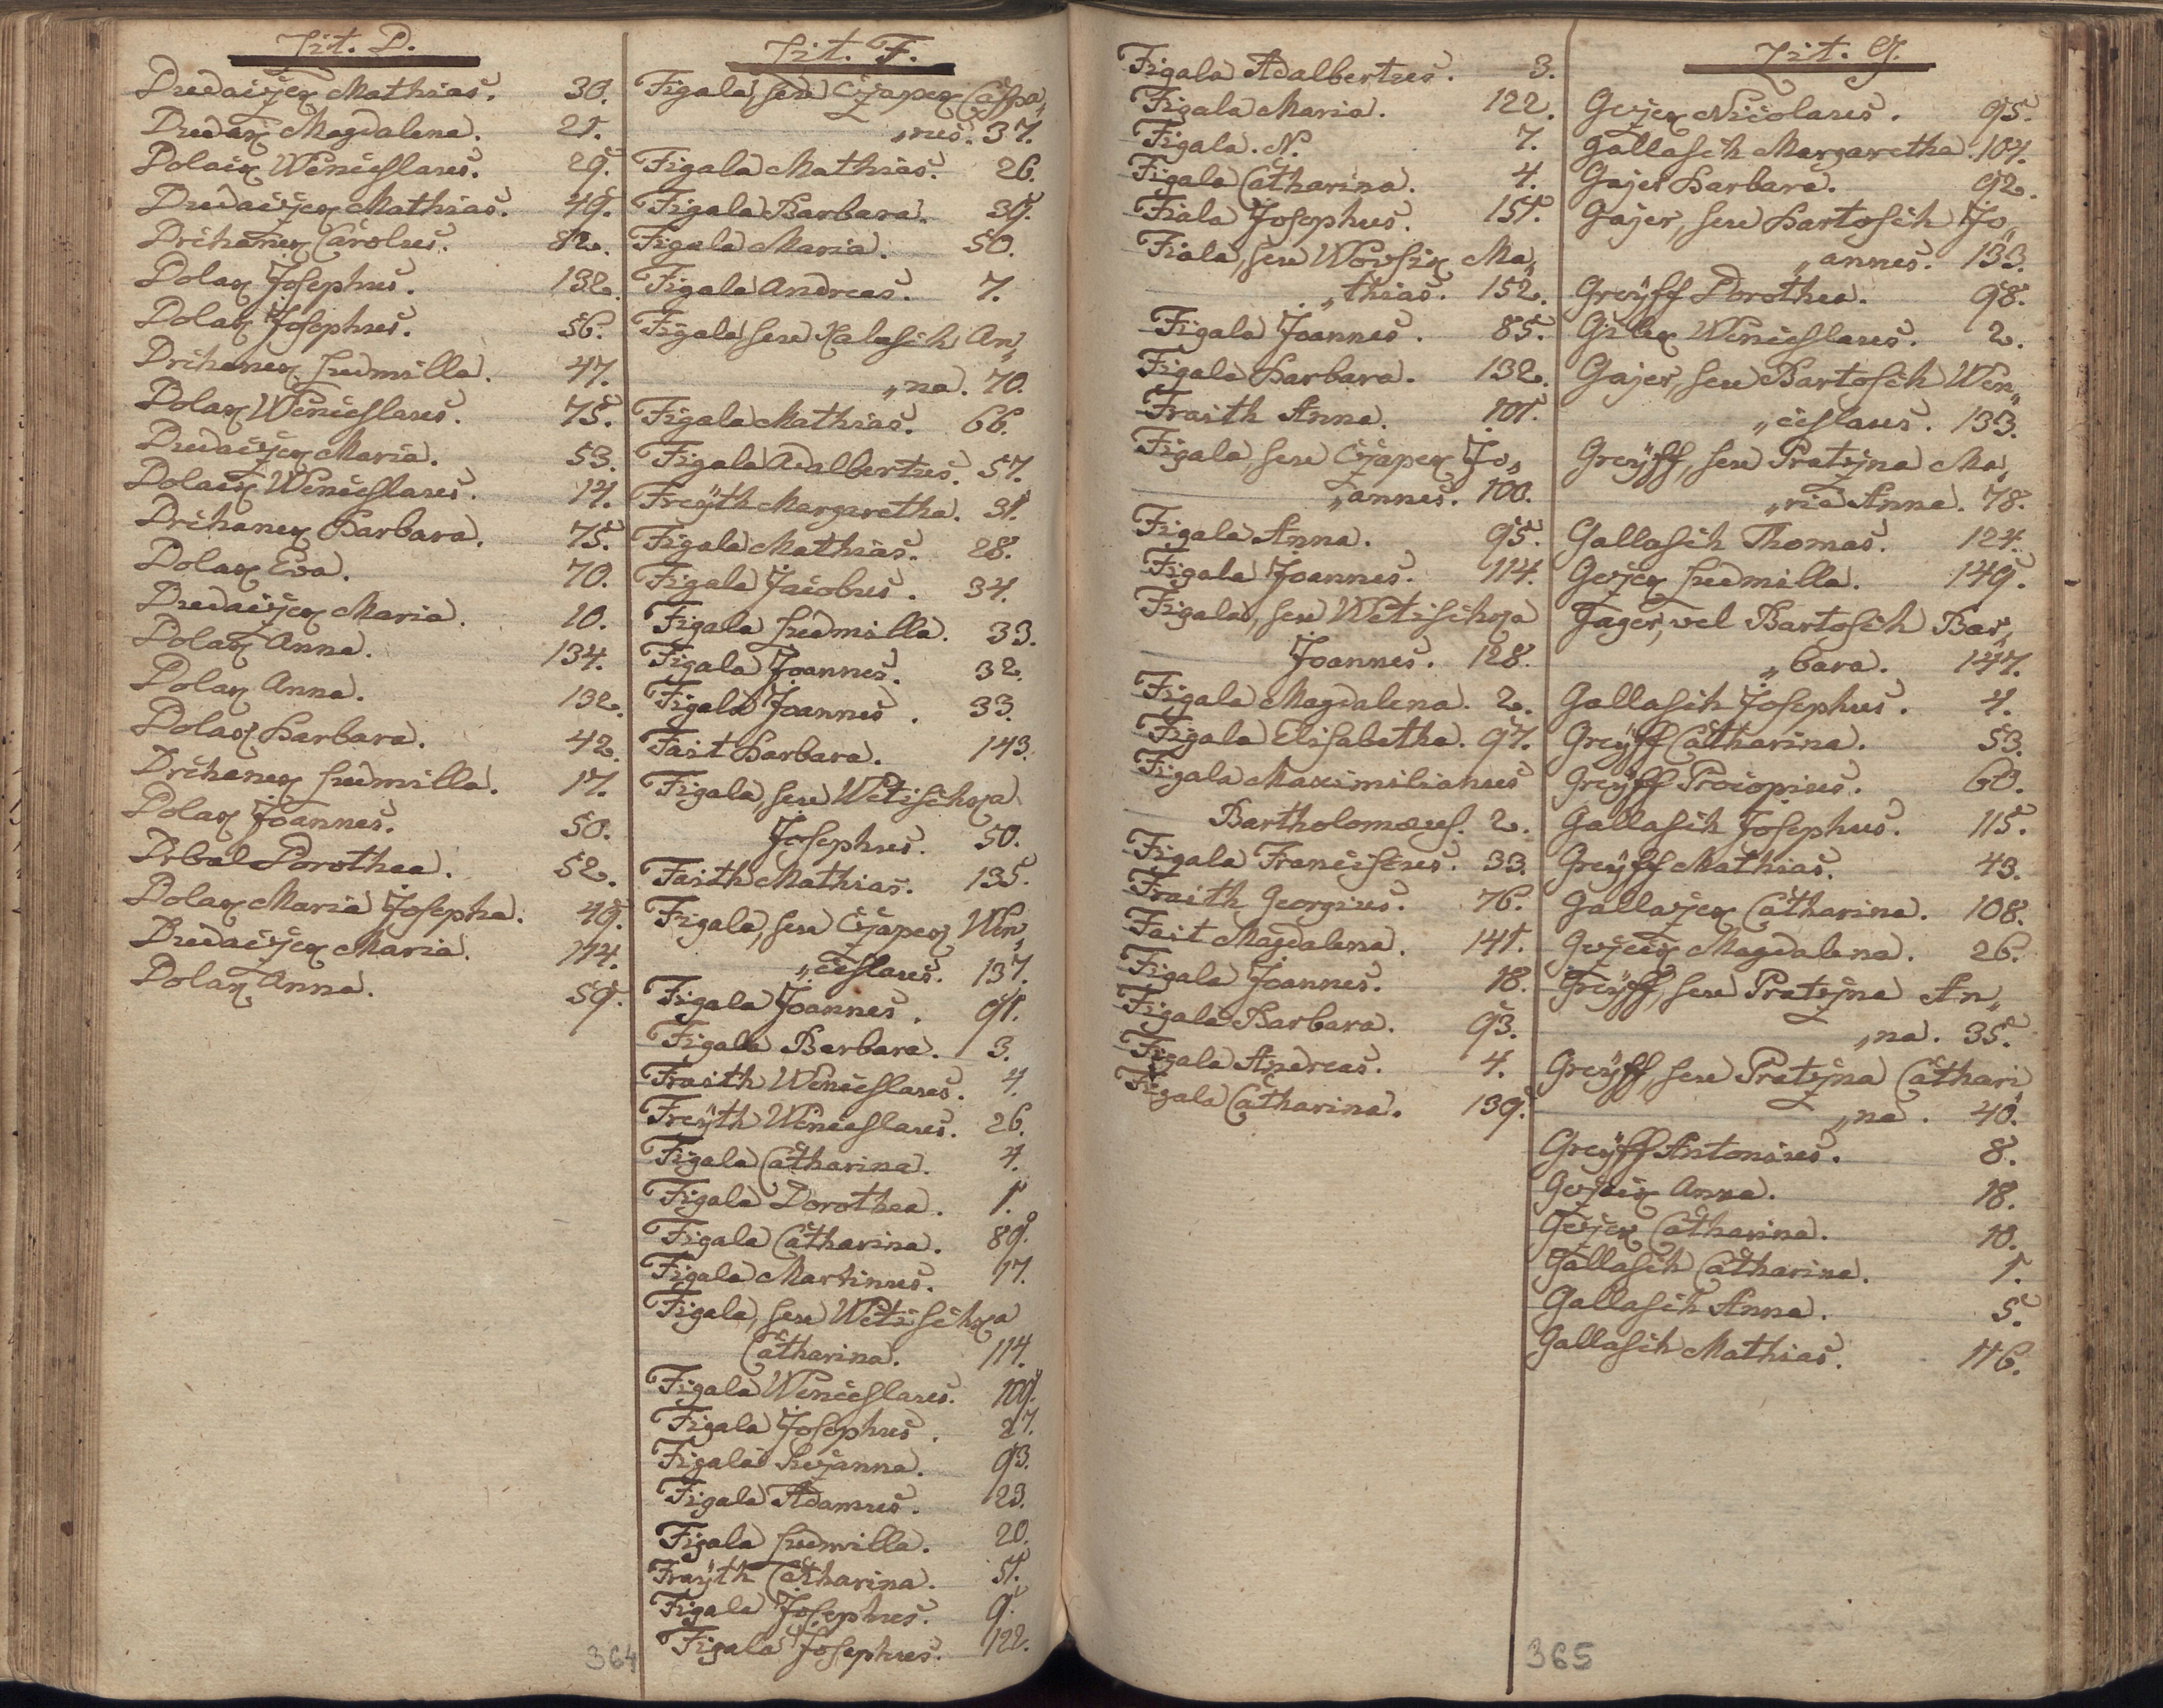 Lit. D.
Dudaczek Mathias. 30.
Dudak Magdalena. 21.
Dolack Wenceslaus. 29.
Dudaczek Mathias. 49.
Drchanek Carolus. 82.
Dolak Josephus. 132.
Dolak Josephus. 56.
Drchanek Ludmilla. 47.
Dolak Wenceslaus. 75.
Dudaczek Maria. 53.
Dolack Wenceslaus. 14.
Drchanek Barbara. 75.
Dolak Eva. 70.
Dudaczek Maria. 10.
Dolak Anna. 134.
Dolak Anna. 132.
Dolak Barbara. 42.
Drchanek Ludmilla. 17.
Dolak Joannes. 50.
Drbal Dorothea. 52.
Dolak Maria Josepha. 49.
Dudaczek Maria. 114.
Dolak Anna. 59.
Lit. F.
Figala, seu Czapek Caspa„
„rus. 37.
Figala Mathias. 26.
Figala Barbara. 39.
Figala Maria. 50.
Figala Andreas. 7.
Figala seu Kalasch An„
„na. 70.
Figala Mathias. 66.
Figala Adalbertus. 57.
Freÿth Margaretha. 31.
Figala Mathias. 28.
Figala Jacobus. 34.
Figala Ludmilla. 33.
Figala Joannes. 32.
Figala Joannes. 33.
Fait Barbara. 143.
Figala, seu Wetischka
Josephus. 50.
Faith Mathias. 135.
Figala, seu Czapek Wen„
„ceslaus. 137.
Figala Joannes. 91.
Figala Barbara. 3.
Fraith Wenceslaus. 4.
Freÿth Wenceslaus. 26.
Figala Catharina. 4.
Figala Dorothea. 1.
Figala Catharina. 89.
Figala Martinus. 17.
Figala, seu Wetischka
Catharina. 114.
Figala Wenceslaus. 109.
Figala Josephus. 27.
Figala Suzanna. 93.
Figala Adamus. 23.
Figala Ludmilla. 20.
Fraÿth Catharina. 51.
Figala Josephus. 9.
Figala Josephus. 122.
364
Figala Adalbertus. 3.
Figala Maria. 122.
Figala. N. 7.
Figala Catharina. 4.
Fiala Josephus. 151.
Fiala, seu Wovsik Ma„
„thias. 152.
Figala Joannes. 85.
Figala Barbara. 132.
Fraith Anna. 101.
Figala, seu Czapek Jo„
„annes. 100.
Figala Anna. 95.
Figala Joannes. 114.
Figala, seu Wetischka
Joannes. 128.
Figala Magdalena. 2.
Figala Elisabetha. 97.
Figala Maximilianus
Bartholomæus. 2.
Figala Franciscus. 33.
Fraith Georgius. 76.
Fait Magdalena. 141.
Figala Joannes. 18.
Figala Barbara. 93.
Figala Andreas. 4.
Figala Catharina. 139.
Lit. G.
Gezek Nicolaus. 95.
Gallasch Margaretha. 104.
Gajer Barbara. 92.
Gajer, seu Bartosch Jo„
„annes. 133.
Greÿff Dorothea. 98.
Gilek Wenceslaus. 2.
Gajer, seu Bartosch Wen„
„ceslaus. 133.
Greÿff, seu Pratzna Ma„
„ria Anna. 78.
Gallasch Thomas. 124.
Gezek Ludmilla. 149.
Gager, vel Bartosch Bar„
„bara. 147.
Gallasch Josephus. 4.
Greÿff Catharina. 53.
Greÿff Procopius. 60.
Gallasch Josephus. 115.
Greÿff Mathias. 43.
Gallazek Catharina. 108.
Magdalena. 26.
Greÿff, seu Pratzna An„
„na. 35.
Greÿff, seu Pratzna Cathari
„na. 40.
Greÿff Antonius. 8.
Anna. 18.
Gezek Catharina. 10.
Gallasch Catharina. 1.
Gallasch Anna. 5.
Gallasch Mathias. 116.
365